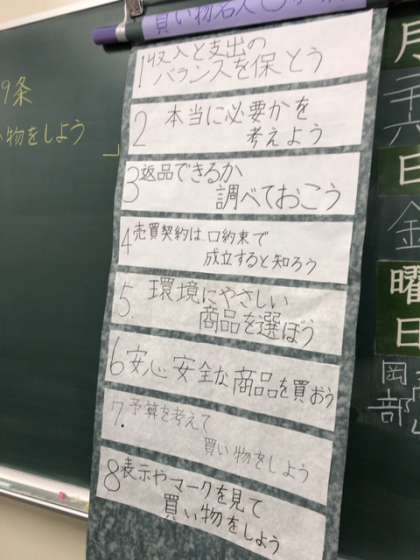 買い物名人
9条
物をしよう
1 収入と支出の
バランスを保とう
2 本当に必要かを
考えよう
3 返品できるか
調べておこう
4 売買契約は口約束で
成立すると知ろう
5. 環境にやさしい
商品を選ぼう
6 安心安全な商品を買おう
7. 予算を考えて
買い物をしよう
8 表示やマークを見て
買い物をしよう
月
六
日
金
曜
日
岡
部